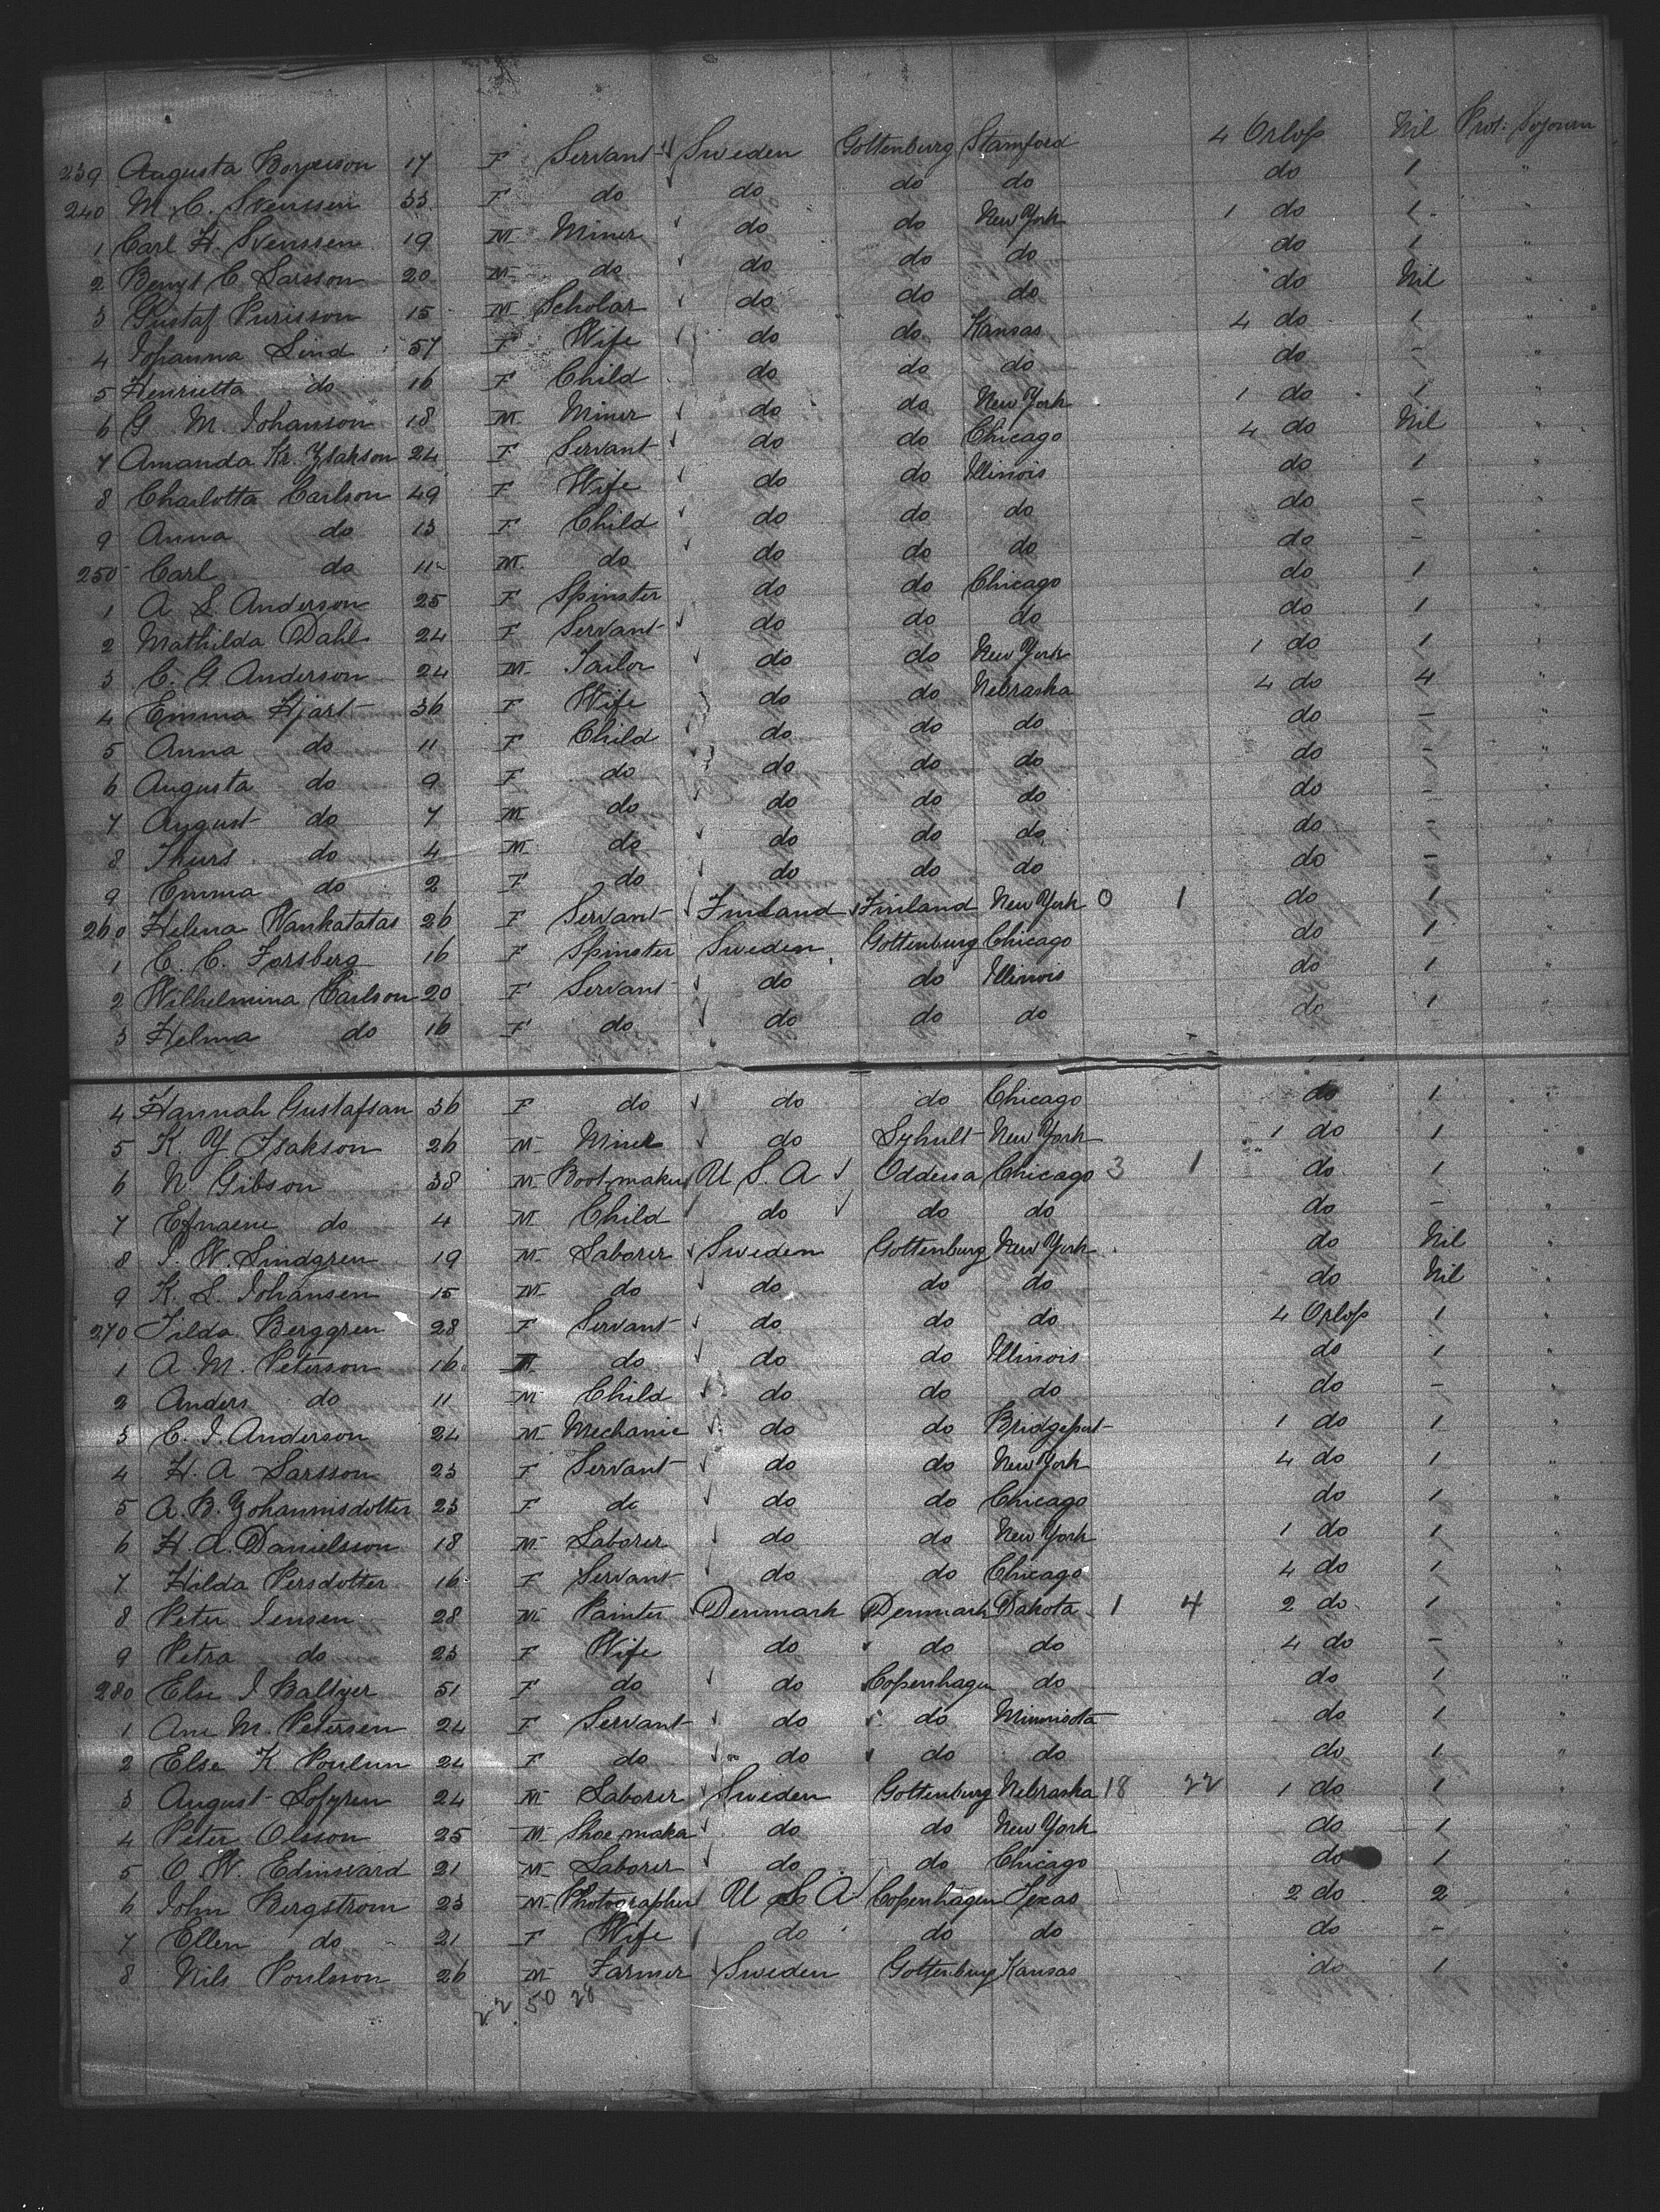 239 Augusta Borjesson 17 F Servant Sweden Gottenburg Stamford 4 Orlop Nil Prot. Sojourn
240 M. C. Svenssen 33 F do do do do do 1 "
1 Carl H. Svenssen 19 M Miner do do New York 1 do 1 "
2 Bengt C Larsson 20 M do do do do do 1 "
3 Gustaf 15 M Scholar do do do do Nil "
4 Johanna Lind 57 F Wife do do Kansas 4 do 1 "
5 Henrietta do 16 F Child do do do do - "
6 G M. Johanson 18 M Miner do do New York 1 do 1 "
7 Amanda Kr. Ysakson 24 F Servant do do Chicago 4 do Nil "
8 Charlotta Carlson 49 F Wife do do Illinois do 1 "
9 Anna do 13 F Child do do do do - "
250 Carl do 11 M do do do do do - "
1 A L. Anderson 25 F Spinster do do Chicago do 1 "
2 Mathilda Dahl 24 F Servant do do do do 1 "
3 C. G Anderson 24 M Tailor do do New York 1 do 1 "
4 Emma Hjart 36 F Wife do do Nebraska 4 do 4 "
5 Anna do 11 F Child do do do do - "
6 Augusta do 9 F do do do do do - "
7 August do 7 M do do do do do - "
8 Thurs do 4 M do do do do do - "
9 Emma do 2 F do do do do do - "
260 Helena Wankatatas 26 F Servant Finland Finland New York 0 1 do 1 "
1 C. C. Forsberg 16 F Spinster Sweden Gottenburg Chicago do 1 "
2 Wilhelmina Carlson 20 F Servant do do Illinois do 1 "
3 Helma do 16 F do do do do do 1 "
4 Hannah Gustafsan 36 F do do do Chicago do 1 "
5 K. Y Isakson 26 M Miner do Syhult New York 1 do 1 "
6 N Gibson 38 M Boot maker U S. A Oddessa Chicago 3 1 do 1 "
7 Efraene do 4 M Child do do do do - "
8 J. W. Lindgren 19 M Laborer Sweden Gottenburg New York do Nil "
9 K. L. Johansen 15 M do do do do do Nil "
270 Tilda Berggren 28 F Servant do do do 4 Orlop 1 "
1 A. M. Peterson 16 do do do Illinois do 1 "
2 Anders do 11 M Child do do do do - "
3 C. J. Anderson 24 M Mechanic do do Bridgeport 1 do 1 "
4 H. A Larsson 23 F Servant do do New York 4 do 1 "
5 A. B. Yohannisdotter 23 F do do do Chicago do 1 "
6 H. A. Danielsson 18 M Laborer do do New York 1 do 1 "
7 Hilda Persdotter 16 F Servant do do Chicago 4 do 1 "
8 Peter Jensen 28 M Painter Denmark Denmark Dakota 1 4 2 do 1 "
9 Petra do 23 F Wife do do do 4 do - "
280 Else J Baltzer 51 F do do Copenhagen do do 1 "
1 Ane M. Petersen 24 F Servant do do Minnisota do 1 "
2 Else K Poulsen 24 F do do do do do 1 "
3 August Lofgren 24 M Laborer Sweden Gottenburg Nebraska 18 22 1 do 1 "
4 Peter Olsson 25 M Shoe maker do do New York do 1 "
5 O. W. Edinward 21 M Laborer do do Chicago do 1 "
6 John Bergstrom 23 M Photographer U S A Copenhagen Texas 2 do 2 "
7 Ellen do 21 F Wife do do do do - "
8 Nils Poulsson 26 M Farmer Sweden Gottenburg Kansas do 1 "
22 50 28